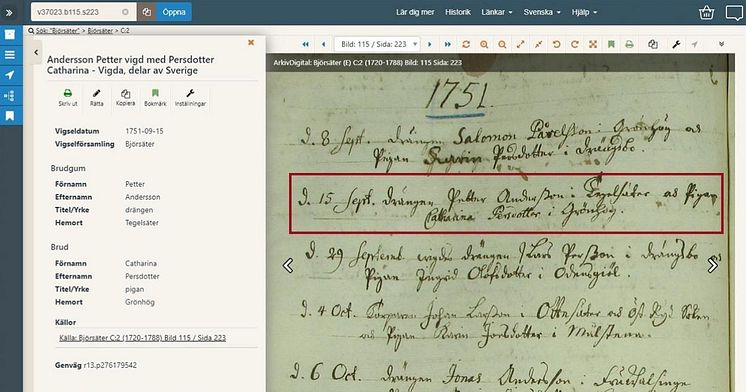 v37023.b115.s223
Öppna
Lär dig mer
Historik
Länkar
Svenska
Hjälp
Sök: "Björsäter" > Björsäter > C:2
Andersson Petter vigd med Persdotter
Catharina - Vigda, delar av Sverige
Skriv ut
Rätta
Kopiera
Bokmärk
Inställningar
Vigseldatum 1751-09-15
Vigselförsamling Björsäter
Brudgum
Förnamn Petter
Efternamn Andersson
Titel/Yrke drängen
Hemort Tegelsäter
Brud
Förnamn Catharina
Efternamn Persdotter
Titel/Yrke pigan
Hemort Grönhög
Källor
Källa: Björsäter C:2 (1720-1788) Bild 115 / Sida 223
Genväg r13.p276179542
Bild: 115 / Sida: 223
ArkivDigital: Björsäter (E) C:2 (1720-1788) Bild: 115 Sida: 223
1751.
d. 8 Sept. drängen Salomon i Grönhög
Pigan Persdotter i Drängsbo.
d. 15 Sept. drängen Petter Andersson i Tegelsäter Pigan
Catharina Persdotter i Grönhög.
d. 29 drängen Lars Persson i Drängsbo
Pigan Ingrid Olofsdotter i
d. 4 Oct. Johan Larsson i
Pigan Karin i
d. 6 Oct. drängen Jonas Andersson i